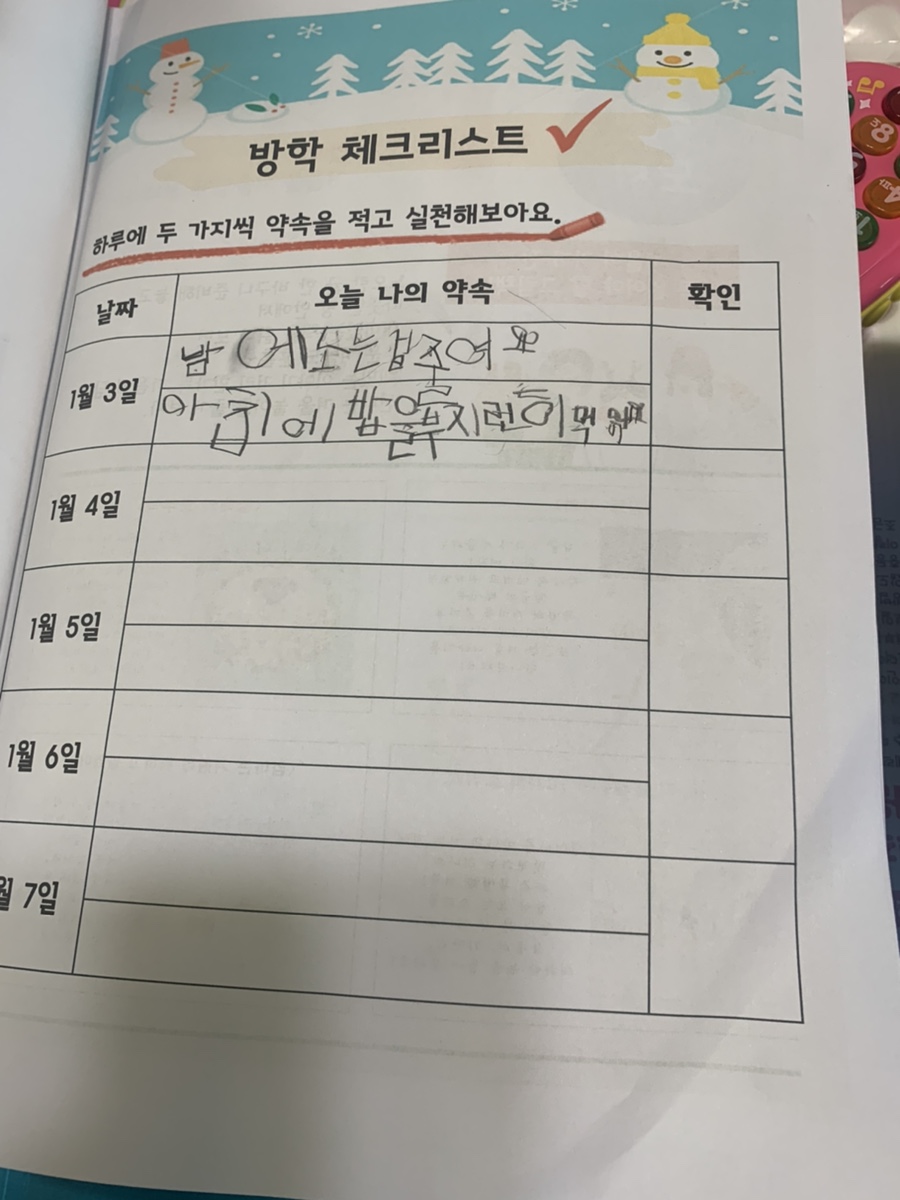 방학 체크리스트
하루에 두 가지씩 약속을 적고 실천해보아요.
날짜 오늘 나의 약속 확인
1월 3일
밤 에노는걸줄여요
아침에 밥을부지런히 먹
1월 4일
1월 5일
1월 6일
월 7일